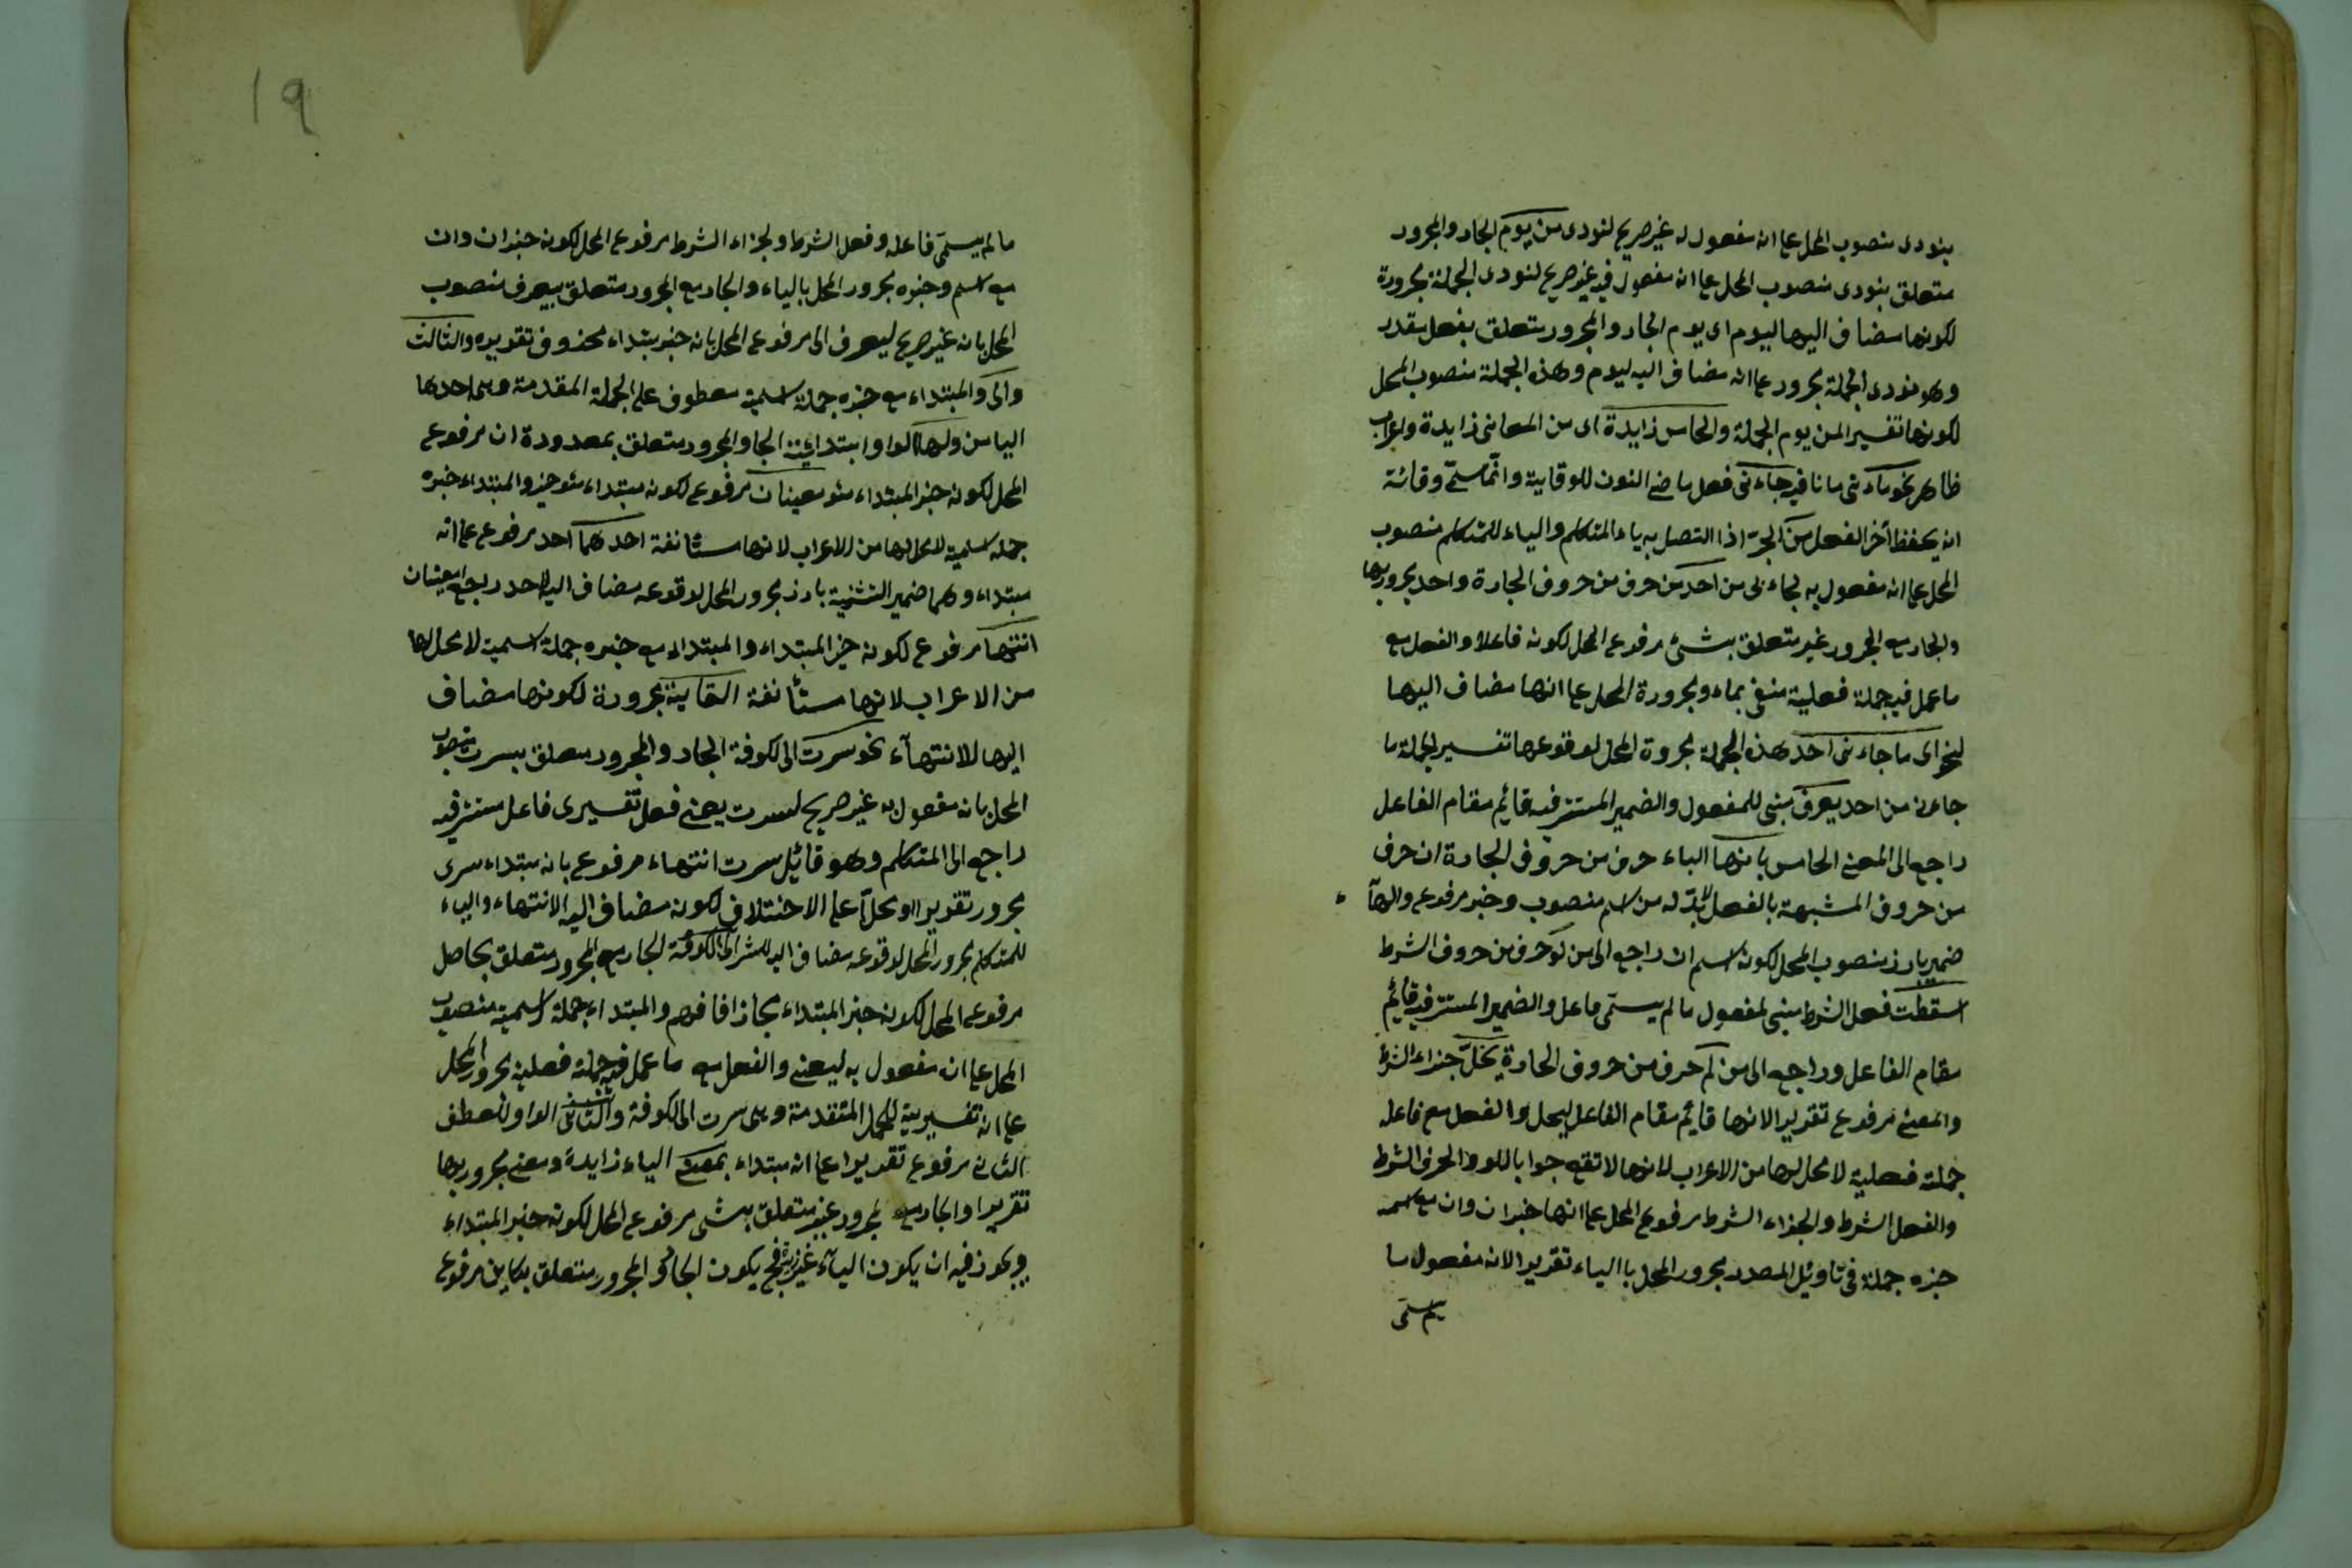 بنودى منصوب المحل على انه مفعول له غير صريح لنودى من يوم الجار والمجرور
متعلق بنودى منصوب المحل على انه مفعول فيه غير صريح لنودى الجملة مجرورة
لكونها مضاف اليها ليوم اى يوم الجار والمجرور متعلق بفعل مقدر
وهو نودى الجملة مجرور على انه مضاف اليه ليوم وهذه الجملة منصوب المحل
لكونها تفسير المن يوم الجملة والخامس زايدة اى من المعانى زايدة واعراب
ظاهر نحو ماء نى ما نافيه جاءنى فعل ماضى النون للوقاية وانما سمى وقائة
انه يحفظ أخر الفعل من الجر اذا اتصل به ياء المتكلم والياء للمتكلم منصوب
المحل على انه مفعول به لجاءنى من احد من حرف من حروف الجارة واحد مجرور بها
والجار مع المجرور غير متعلق بشئ مرفوع المحل لكونه فاعلا والفعل مع
ما عمل فيه جملة فعلية منفى بماء ومجرورة المحل على انها مضاف اليها
لنحو اى ما جاءنى احد هذه الجملة مجروة المحل لوقوعها تفسير لجملة ما
جاءنى من احد يعرف مبنى للمفعول والضمير المستتر فيه قائم مقام الفاعل
راجع الى المعنى الخامس بانها الباء حرف من حروف الجارة ان حرف
من حروف المشبهة بالفعل لابد له من اسم منصوب وخبر مرفوع والهآ
ضمير بارز منصوب المحل لكونه اسم ان راجع الى من لو حرف من حروف الشرط
اسقطت فعل الشرط مبنى لمفعول ما لم يسمى فاعل والضمير المستتر فيه قائم
مقام الفاعل وراجع الى من لم حرف من حروف الجارة يخل جزاء الشرط
والمعنى مرفوع تقديرا لانها قائم مقام الفاعل ليخل والفعل مع فاعله
جملة فعلية لا محل لها من الاعراب لانها لا تقع جوابا للو والحرف الشرط
والفعل الشرط والجزاء الشرط مرفوع المحل على انها خبر ان وان مع اسمه
خبره جملة فى تاويل المصدر مجرور المحل باالياء تقديرا لانه مفعول ما
لم يسمى
ما لم يسمى فاعله وفعل الشرط ولجزاء الشرط مرفوع المحل لكونه خبر ان وان
مع اسم وخبره مجرور المحل بالياء والجار مع المجرور متعلق بيعرف منصوب
المحل بانه غير صريح ليعرف الى مرفوع المحل بانه خبر مبتداء محذوف تقديره والثالث
والى والمبتداء مع خبره جملة اسمية معطوف على الجملة المقدمة وهى احدها
اليا من ولها الواو ابتدائية الجار والمجرور متعلق بمعدودة ان مرفوع
المحل لكونه خبر المبتداء معينان مرفوع لكونه مبتداء مؤخر والمبتداء خبره
جملة اسمية لا محل لها من الاعراب لانها مستأنفة احدهما احد مرفوع على انه
مبتداء وهما ضمير التثنية بارز مجرور المحل لوقوعه مضاف اليه لاحد راجع معينان
انتها مرفوع لكونه خبر المبتداء والمبتداء مع خبره جملة اسمية لا محل لها
من الاعراب لانها مستأنفة الغاية مجرورة لكونها مضاف
اليها لانتهآء نحو سرت الى الكوفة الجار والمجرور متعلق بسرت منصوب
المحل بانه مفعول به غير صريح لسرت يعنى فعل تفسيرى فاعل مستتر فيه
راجع الى المتكلم وهو قائيل سرت انتهاء مرفوع بانه مبتداء سرى
مجرور تقديرا ومحلا على الاختلاف لكونه مضاف اليه الانتهاء والياء
للمتكلم مجرور المحل لوقوعه مضاف اليه الى الكوفة الجار مع المجرور متعلق بحاصل
مرفوع المحل لكونه خبر المبتداء مجازا فافهم والمبتداء جملة اسمية منصوب
المحل على ان مفعول به ليعنى والفعل مع ما عمل فيه جملة فعلية مجرور المحل
على انه تفسيرية للجملة المتقدمة وهى سرت الى الكوفة والثانى الواو للعطف
الثانى مرفوع تقديرا على انه مبتداء بمعنى الباء زايدة ومعنى مجرور بها
تقديرا والجار مع المجرور غير متعلق بشى مرفوع المحل لكونه خبر المبتداء
ويجوز فيه ان يكون اليآء غير زيدة فح يكون الجار المجرور متعلق بكاين مرفوع
١٩